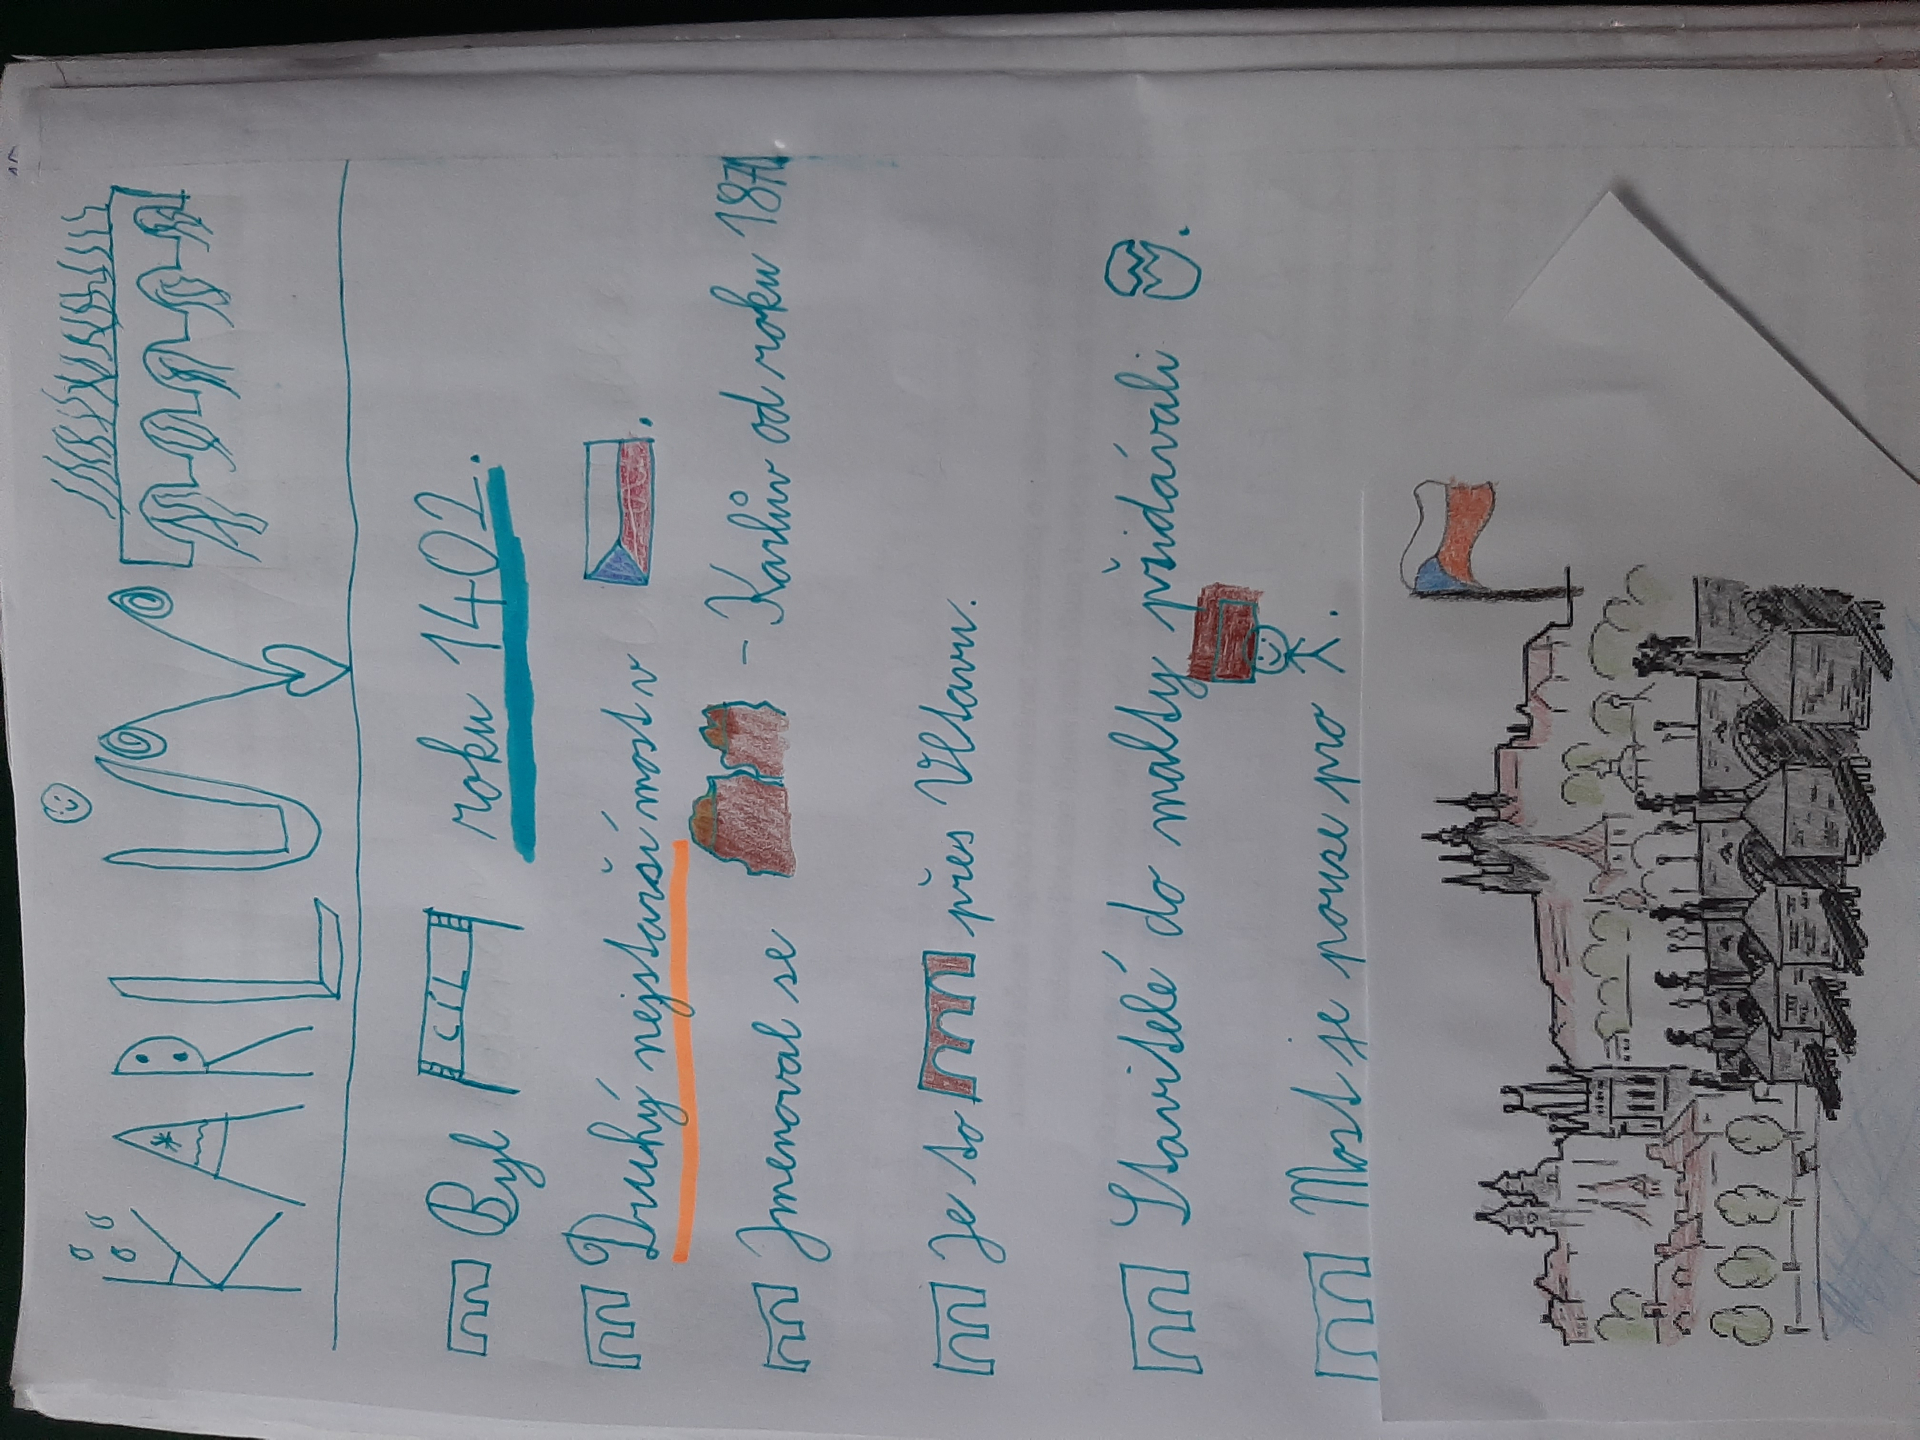 KARLŮV
Byl CÍL roku 1402.
Druhý nejstarší most v .
Jmenoval se - Karlův od roku
Je to přes Vltavu.
Stavitelé do malty přidávali .
Most je pouze pro .